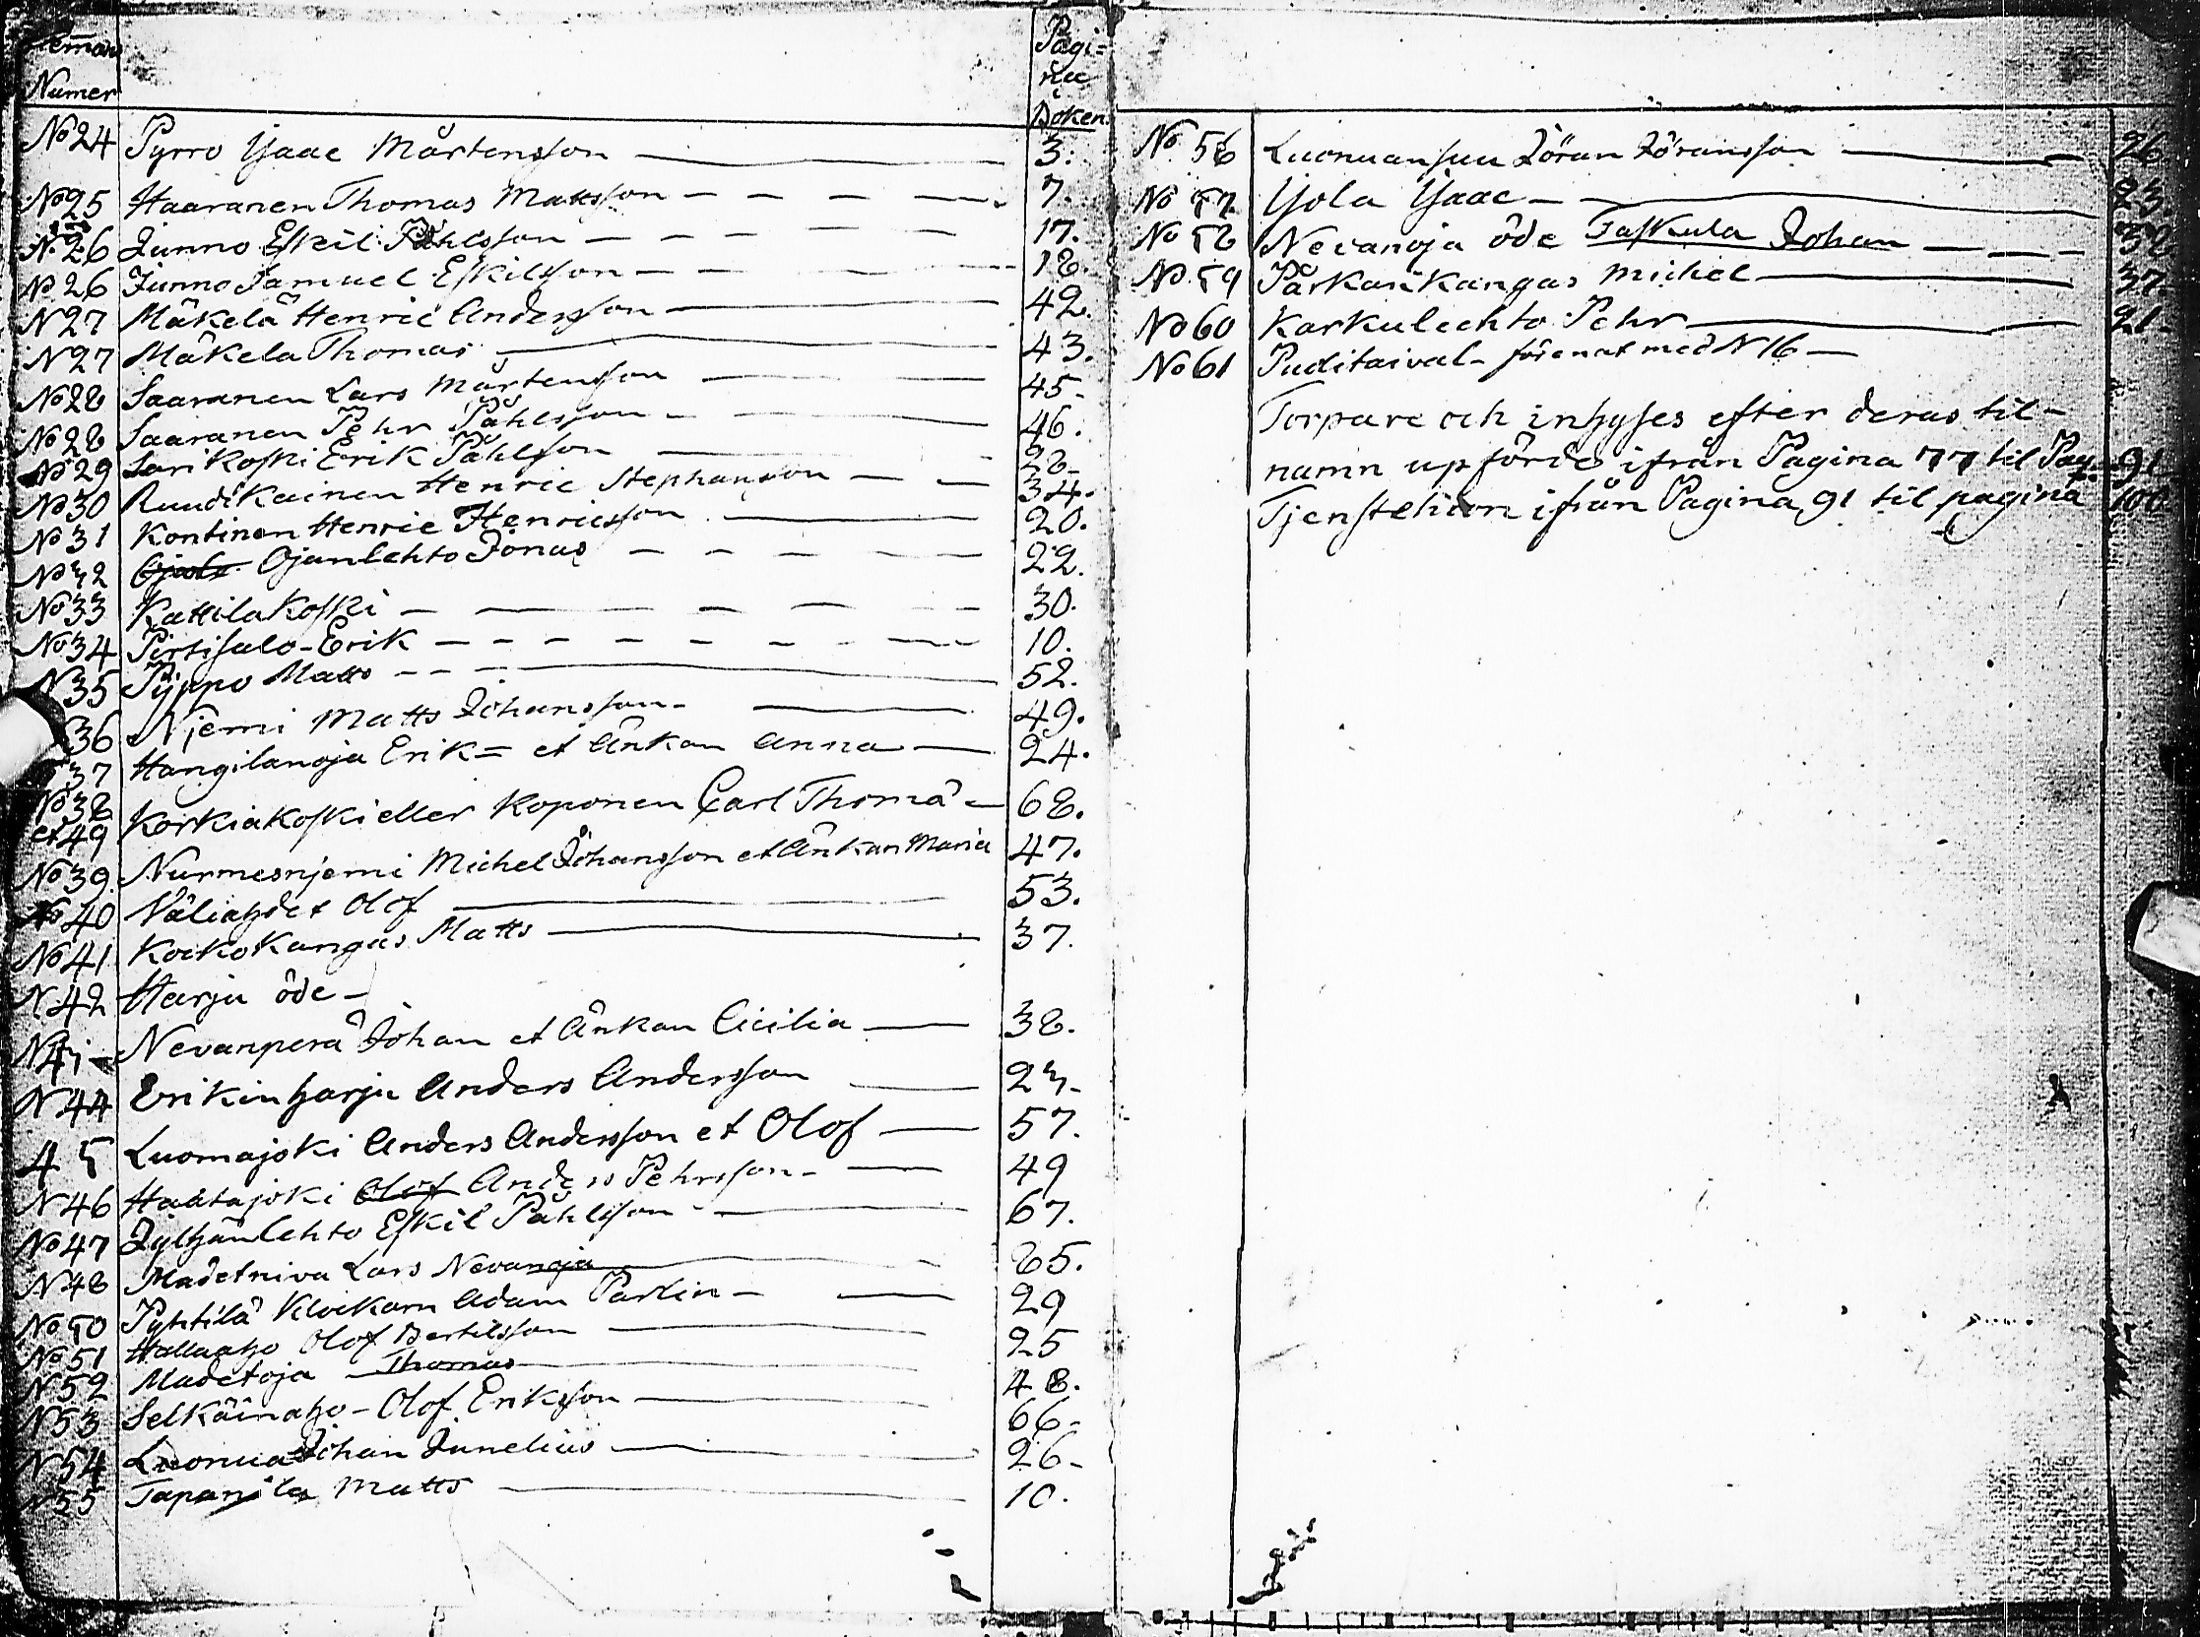 Hemans
Numer
Pagi=
na
i
Boken
No 24 Pyrro Isaac Mårtensson 3.
No 25 Haaranen Thomas Mattsson 7.
N. 26 Junno Eskil Påhlsson 17.
No 26 Junno Samuel Eskilsson 18.
N 27 Mäkelä Henric Andersson 42.
N 27 Mäkelä Thomas 43.
No 28 Saaranen Lars Mårtensson 45.
No 28 Saaranen Pehr Påhlsson 46.
No 29 Sarikoski Erik Påhlsson
No 30 Ruudikainen Henric Stephansson 34.
No 31 Kontinen Henric Henricsson 20.
No 32 Ojala Ojanlehto Jonas 22.
No 33 Kattilakoski 30.
No 34 Pirtisalo - Erik 10.
N 35 Pÿppo Matts 52.
36 Njemi Matts Johansson 49.
37 Hangilanoja Erik = et Änkan Anna 24.
No 38 et 49 Korkiakoski eller Koponen Carl Thomä 68.
No 39. Nurmesnjemi Michel Johansson et Änkan Maria 47.
No 40 Väliahdet Olof 53.
No 41 Kockokangas Matts 37.
N 42 Harju öde
N 43 Nevanperä Johan et Änkan Cicilia 38.
N 44 Erikinharju Anders Andersson 23.
45 Luomajoki Anders Andersson et Olof 57.
N 46 Haatajoki Olof Anders Pehrsson 49
No 47 Jylhänlehto Eskil Påhlsson 67.
N 48 Madetniva Lars Nevanoja 65.
No 50 Pyhtilä Klockarn Adam Parlin 29
No 51 Hallaaho Olof Bertilsson 25
N 52 Madetoja Thomas 48.
N 53 Selkäinaho - Olof Eriksson 66.
N 54 Luonua Johan Junelius 26.
N 55 Tapanila Matts 10.
No 56 Luonuansuu Jöran Jöransson 26
No 57. Yjola Isaac 23.
No 58 Nevanoja öde Taskula Johan 38
No 59 Pärkasikangas Michel 37.
No 60 Karkulehto Pehr 21.
No 61 Puditaival - förenat med N 16
Torpare och inhyses efter deras til-
namn upförde ifrån Pagina 77 til Pag. 91
Tjenstehion ifrån Pagina 91 til pagina 100